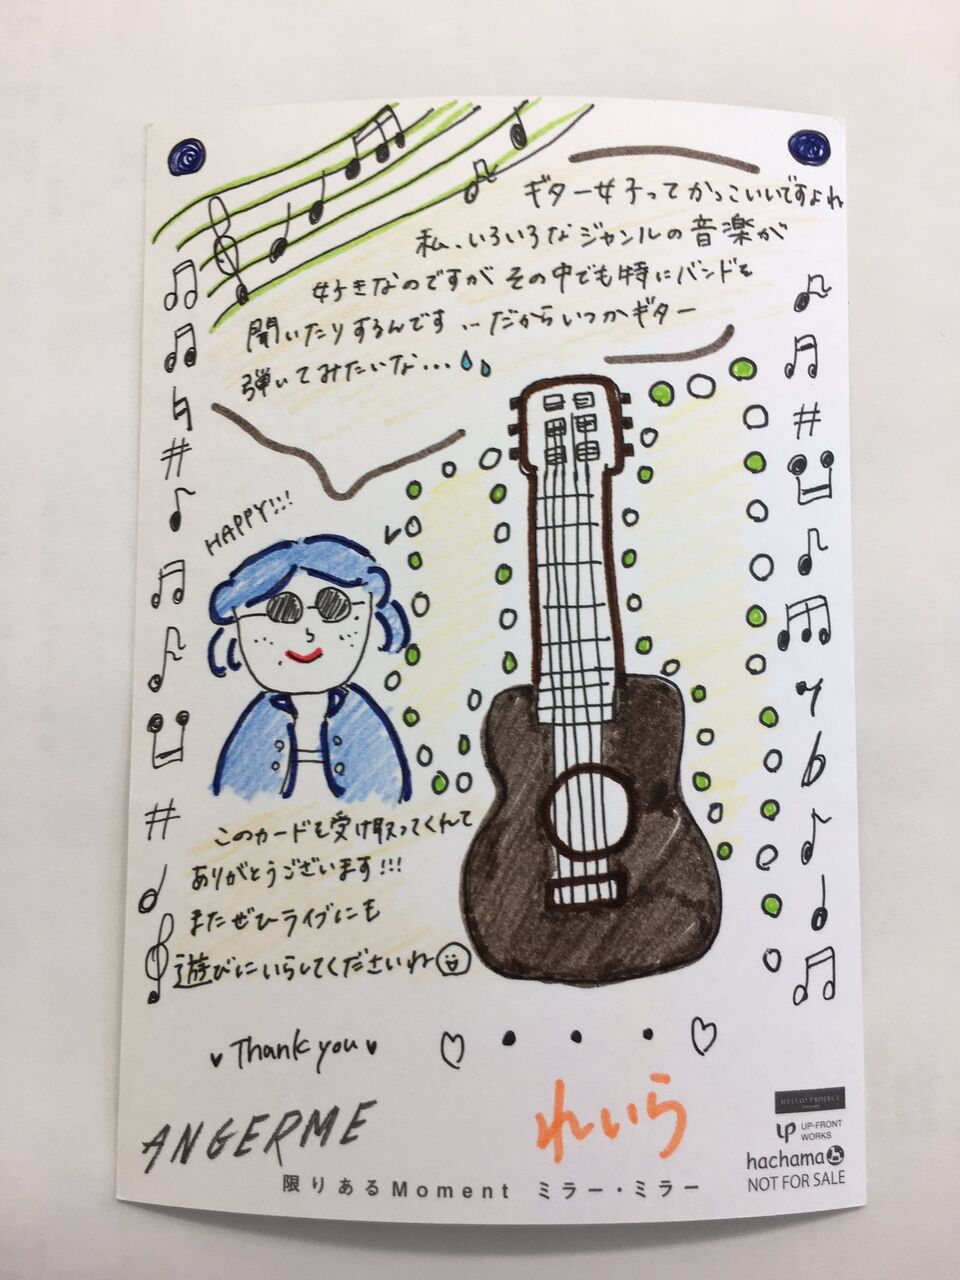 ギター女子ってかっこいいですよね
私、いろいろなジャンルの音楽が
好きなのですがその中でも特にバンドを
聞いたりするんです..だからいつかギター
弾いてみたいな...
HAPPY!!!
このカードを受け取ってくんて
ありがとうございます!!!
またぜひライブにも
遊びにいらしてくださいね
Thank you
ANGERME
れいら
HELLO! PROJECT
UP-FRONT
WORKS
hachama
NOT FOR SALE
限りあるMoment ミラー・ミラー